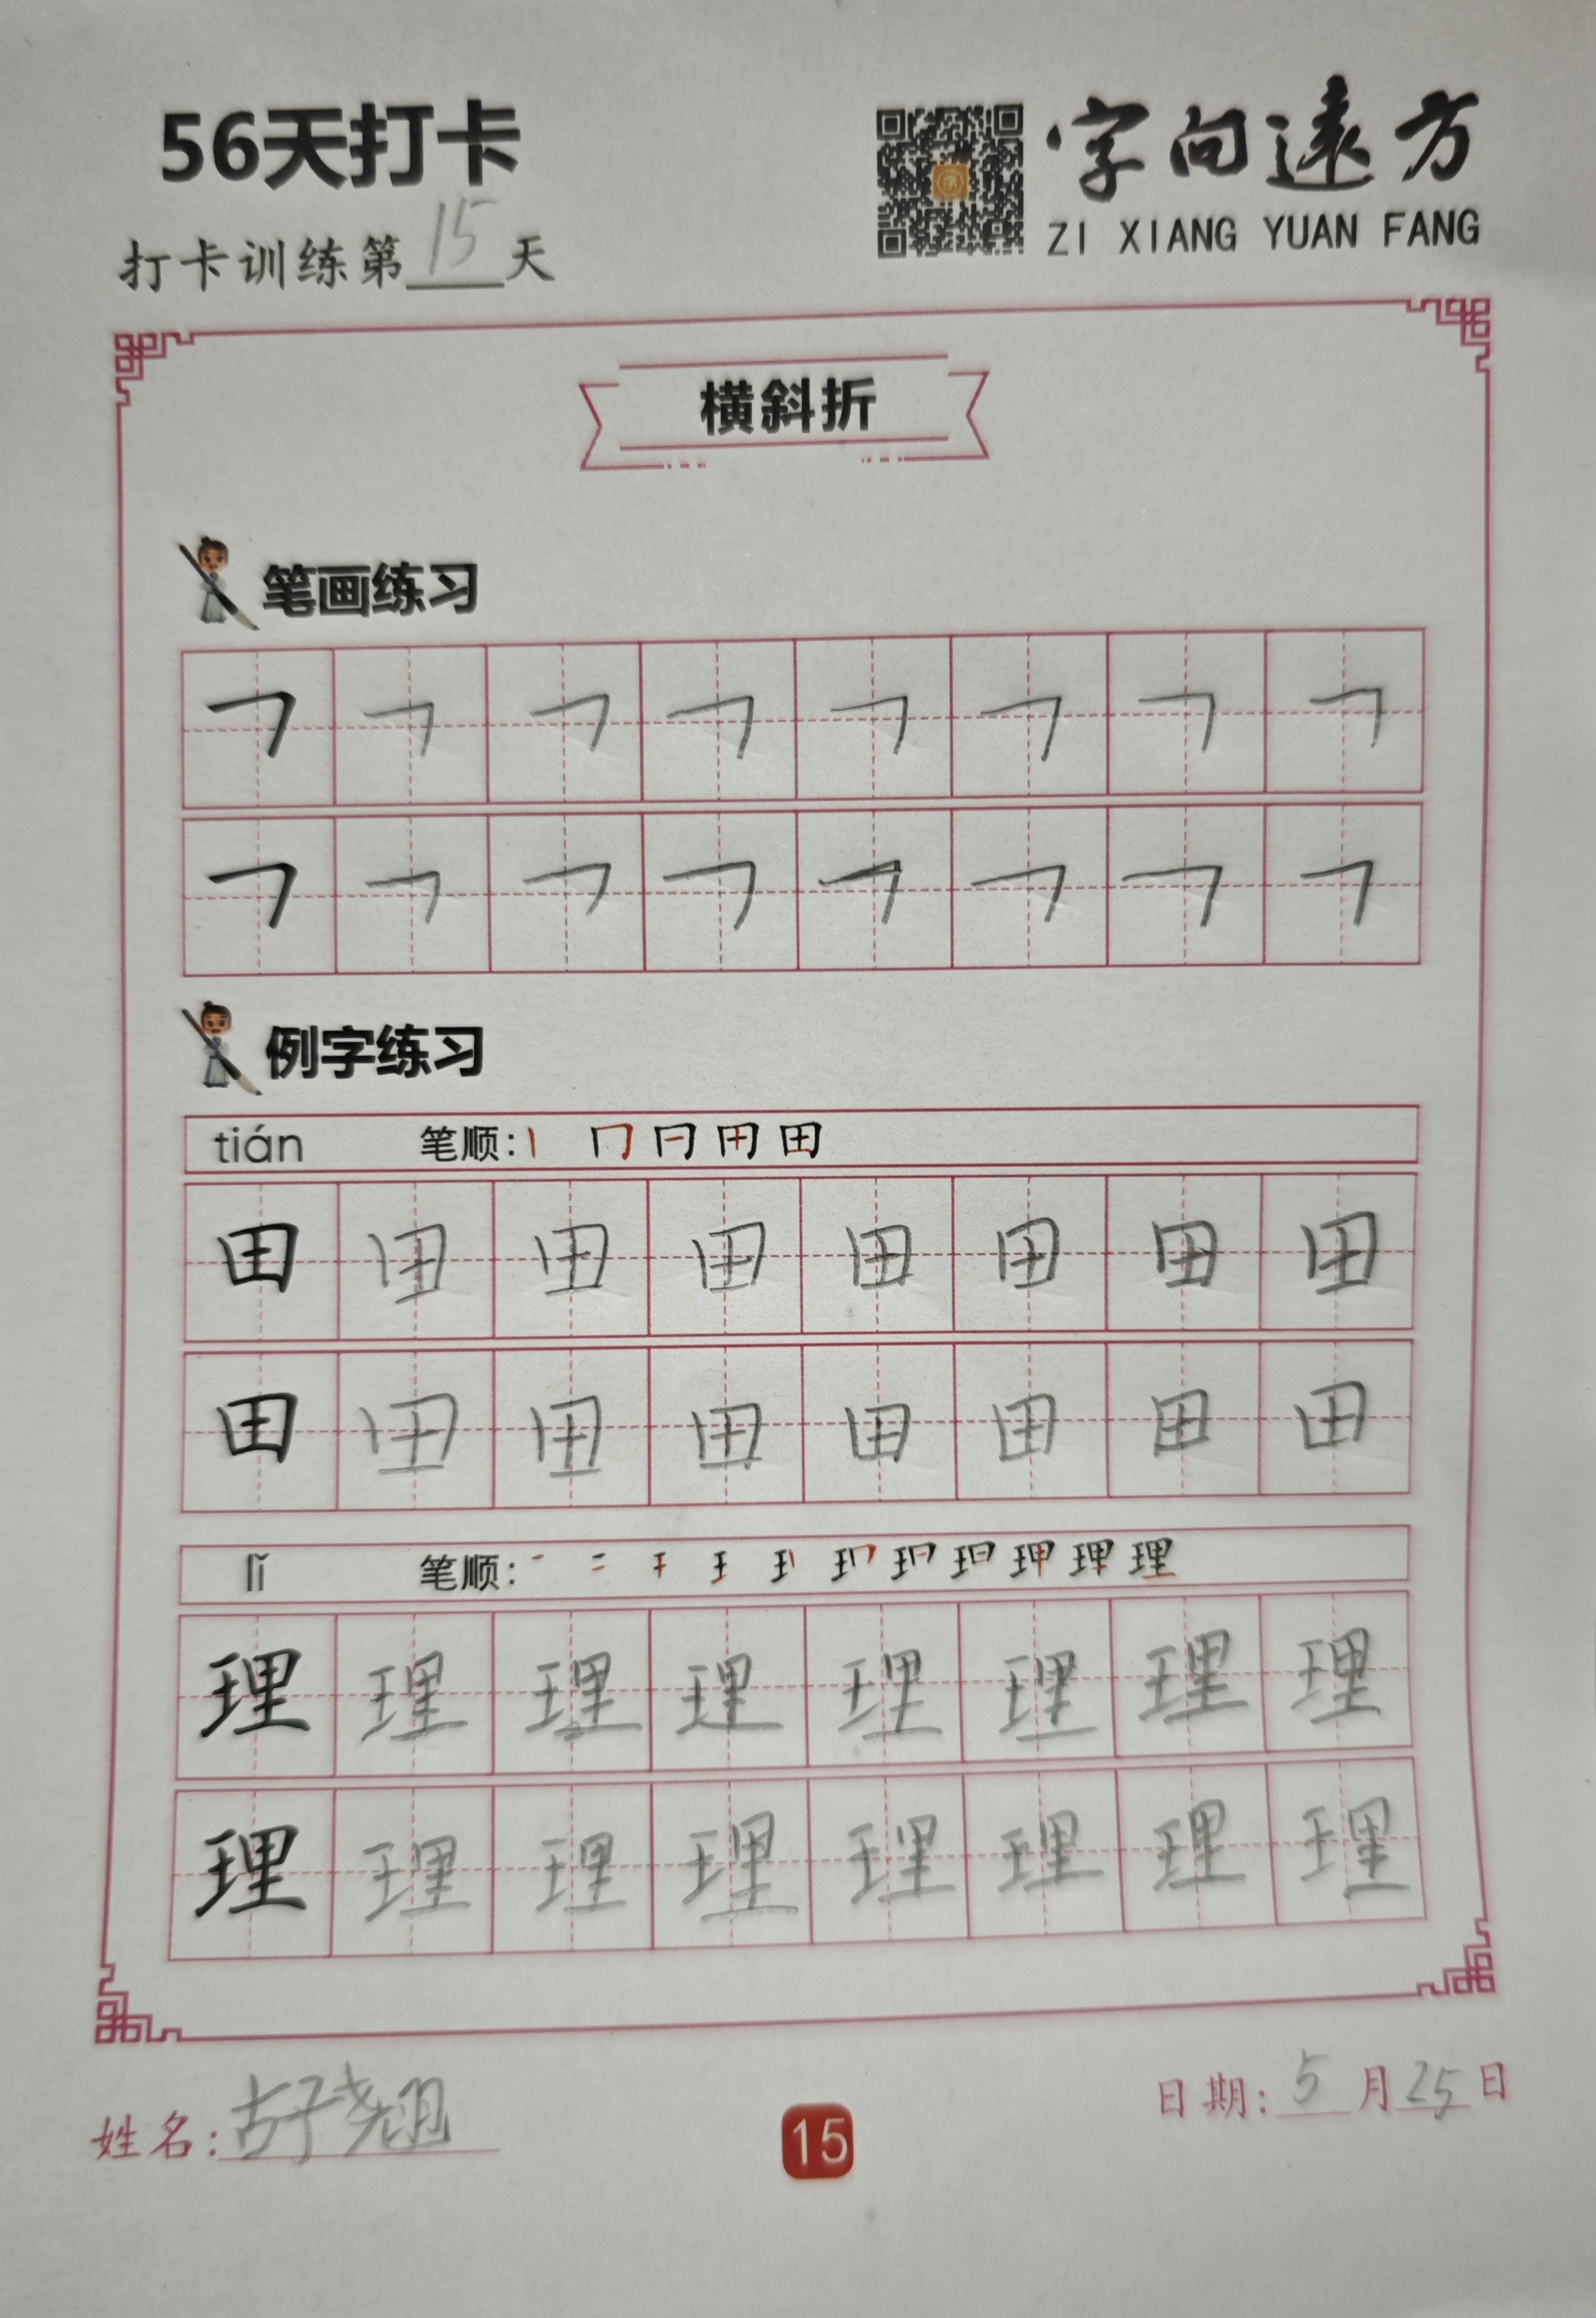 56天打卡
字向遠方
ZI XIANG YUAN FANG
打卡训练第15天
横斜折
笔画练习
例字练习
tián 笔顺:
田 田 田 田 田 田 田 田
田 田 田 田 田 田 田 田
lǐ 笔顺:
理 理 理 理 理 理 理 理
理 理 理 理 理 理 理 理
姓名:
日期:5月25日
15